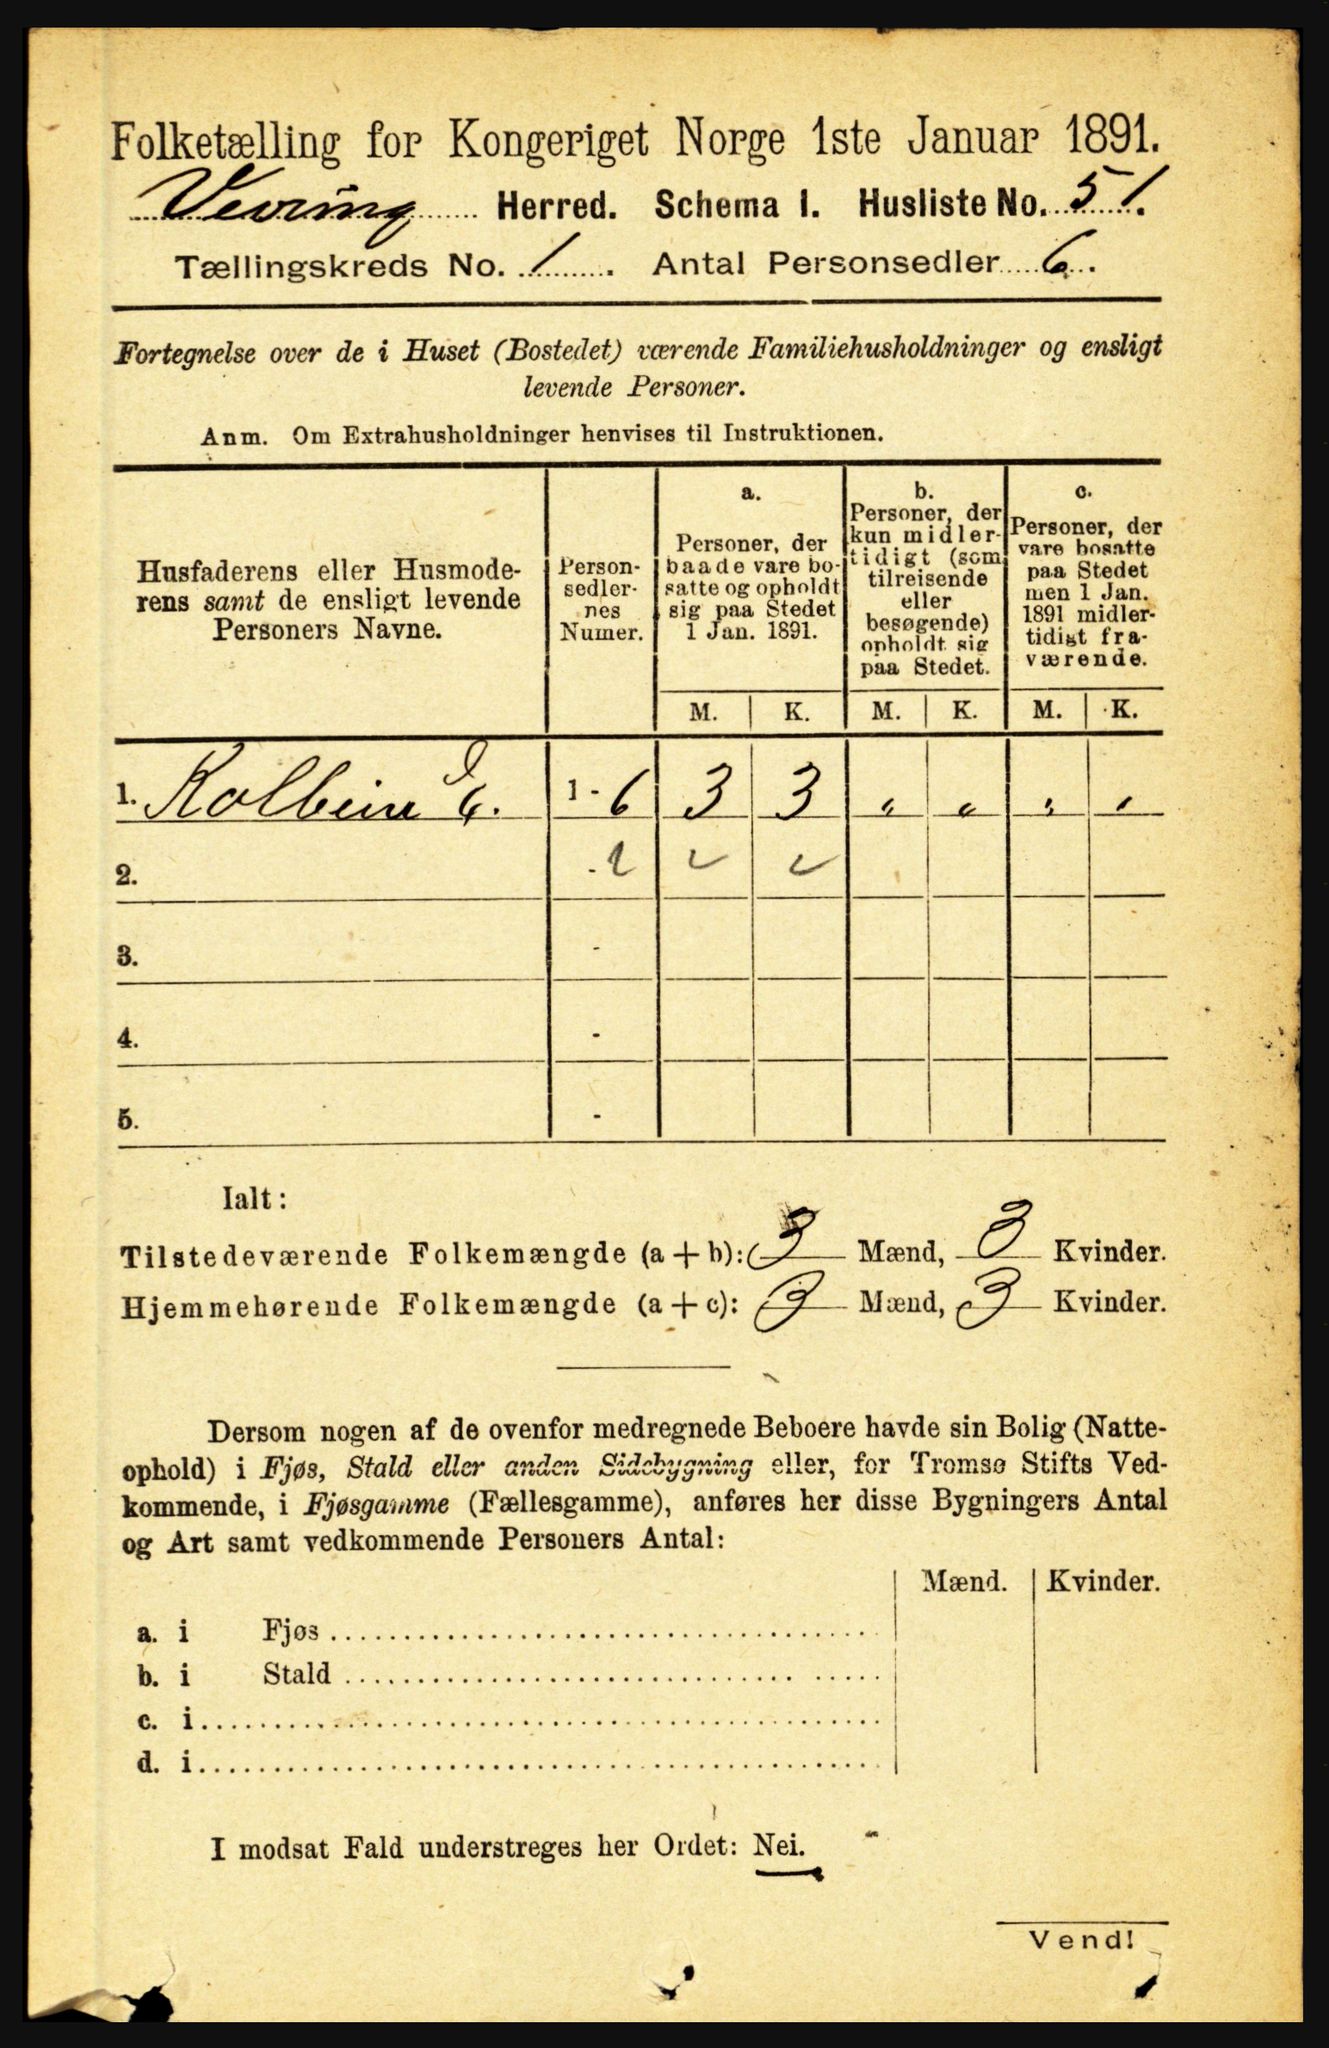 Folketælling for Kongeriget Norge 1ste Januar 1891.
Vevring Herred. Schema I. Husliste No. 51.
Tællingskreds No. 1. Antal Personsedler 6.
Fortegnelse over de i Huset (Bostedet) værende Familiehusholdninger og ensligt
levende Personer.
Anm. Om Extrahusholdninger henvises til Instruktionen.
Husfaderens eller Husmode-
rens samt de ensligt levende
Personers Navne.
Person-
sedler-
nes
Numer.
a.
Personer, der
baade vare bo-
satte og opholdt
sig paa Stedet
1 Jan. 1891.
b.
Personer, der
kun midler-
tidigt (som
tilreisende
eller
besøgende)
opholdt sig
paa Stedet.
c.
Personer, der
vare bosatte
paa Stedet
men 1 Jan.
1891 midler-
tidigt fra-
værende.
M. K. M. K. M. K.
1. Kolbein 1 - 6 3 3 " " " "
2. -
3. -
4. -
5. -
Ialt:
Tilstedeværende Folkemængde (a + b): 3 Mænd, 3 Kvinder.
Hjemmehørende Folkemængde (a + c): 3 Mænd, 3 Kvinder.
Dersom nogen af de ovenfor medregnede Beboere havde sin Bolig (Natte-
ophold) i Fjøs, Stald eller anden Sidebygning eller, for Tromsø Stifts Ved-
kommende, i Fjøsgamme (Fællesgamme), anføres her disse Bygningers Antal
og Art samt vedkommende Personers Antal:
Mænd. Kvinder.
a. i Fjøs
b. i Stald
c. i
d. i
I modsat Fald understreges her Ordet: Nei.
Vend!